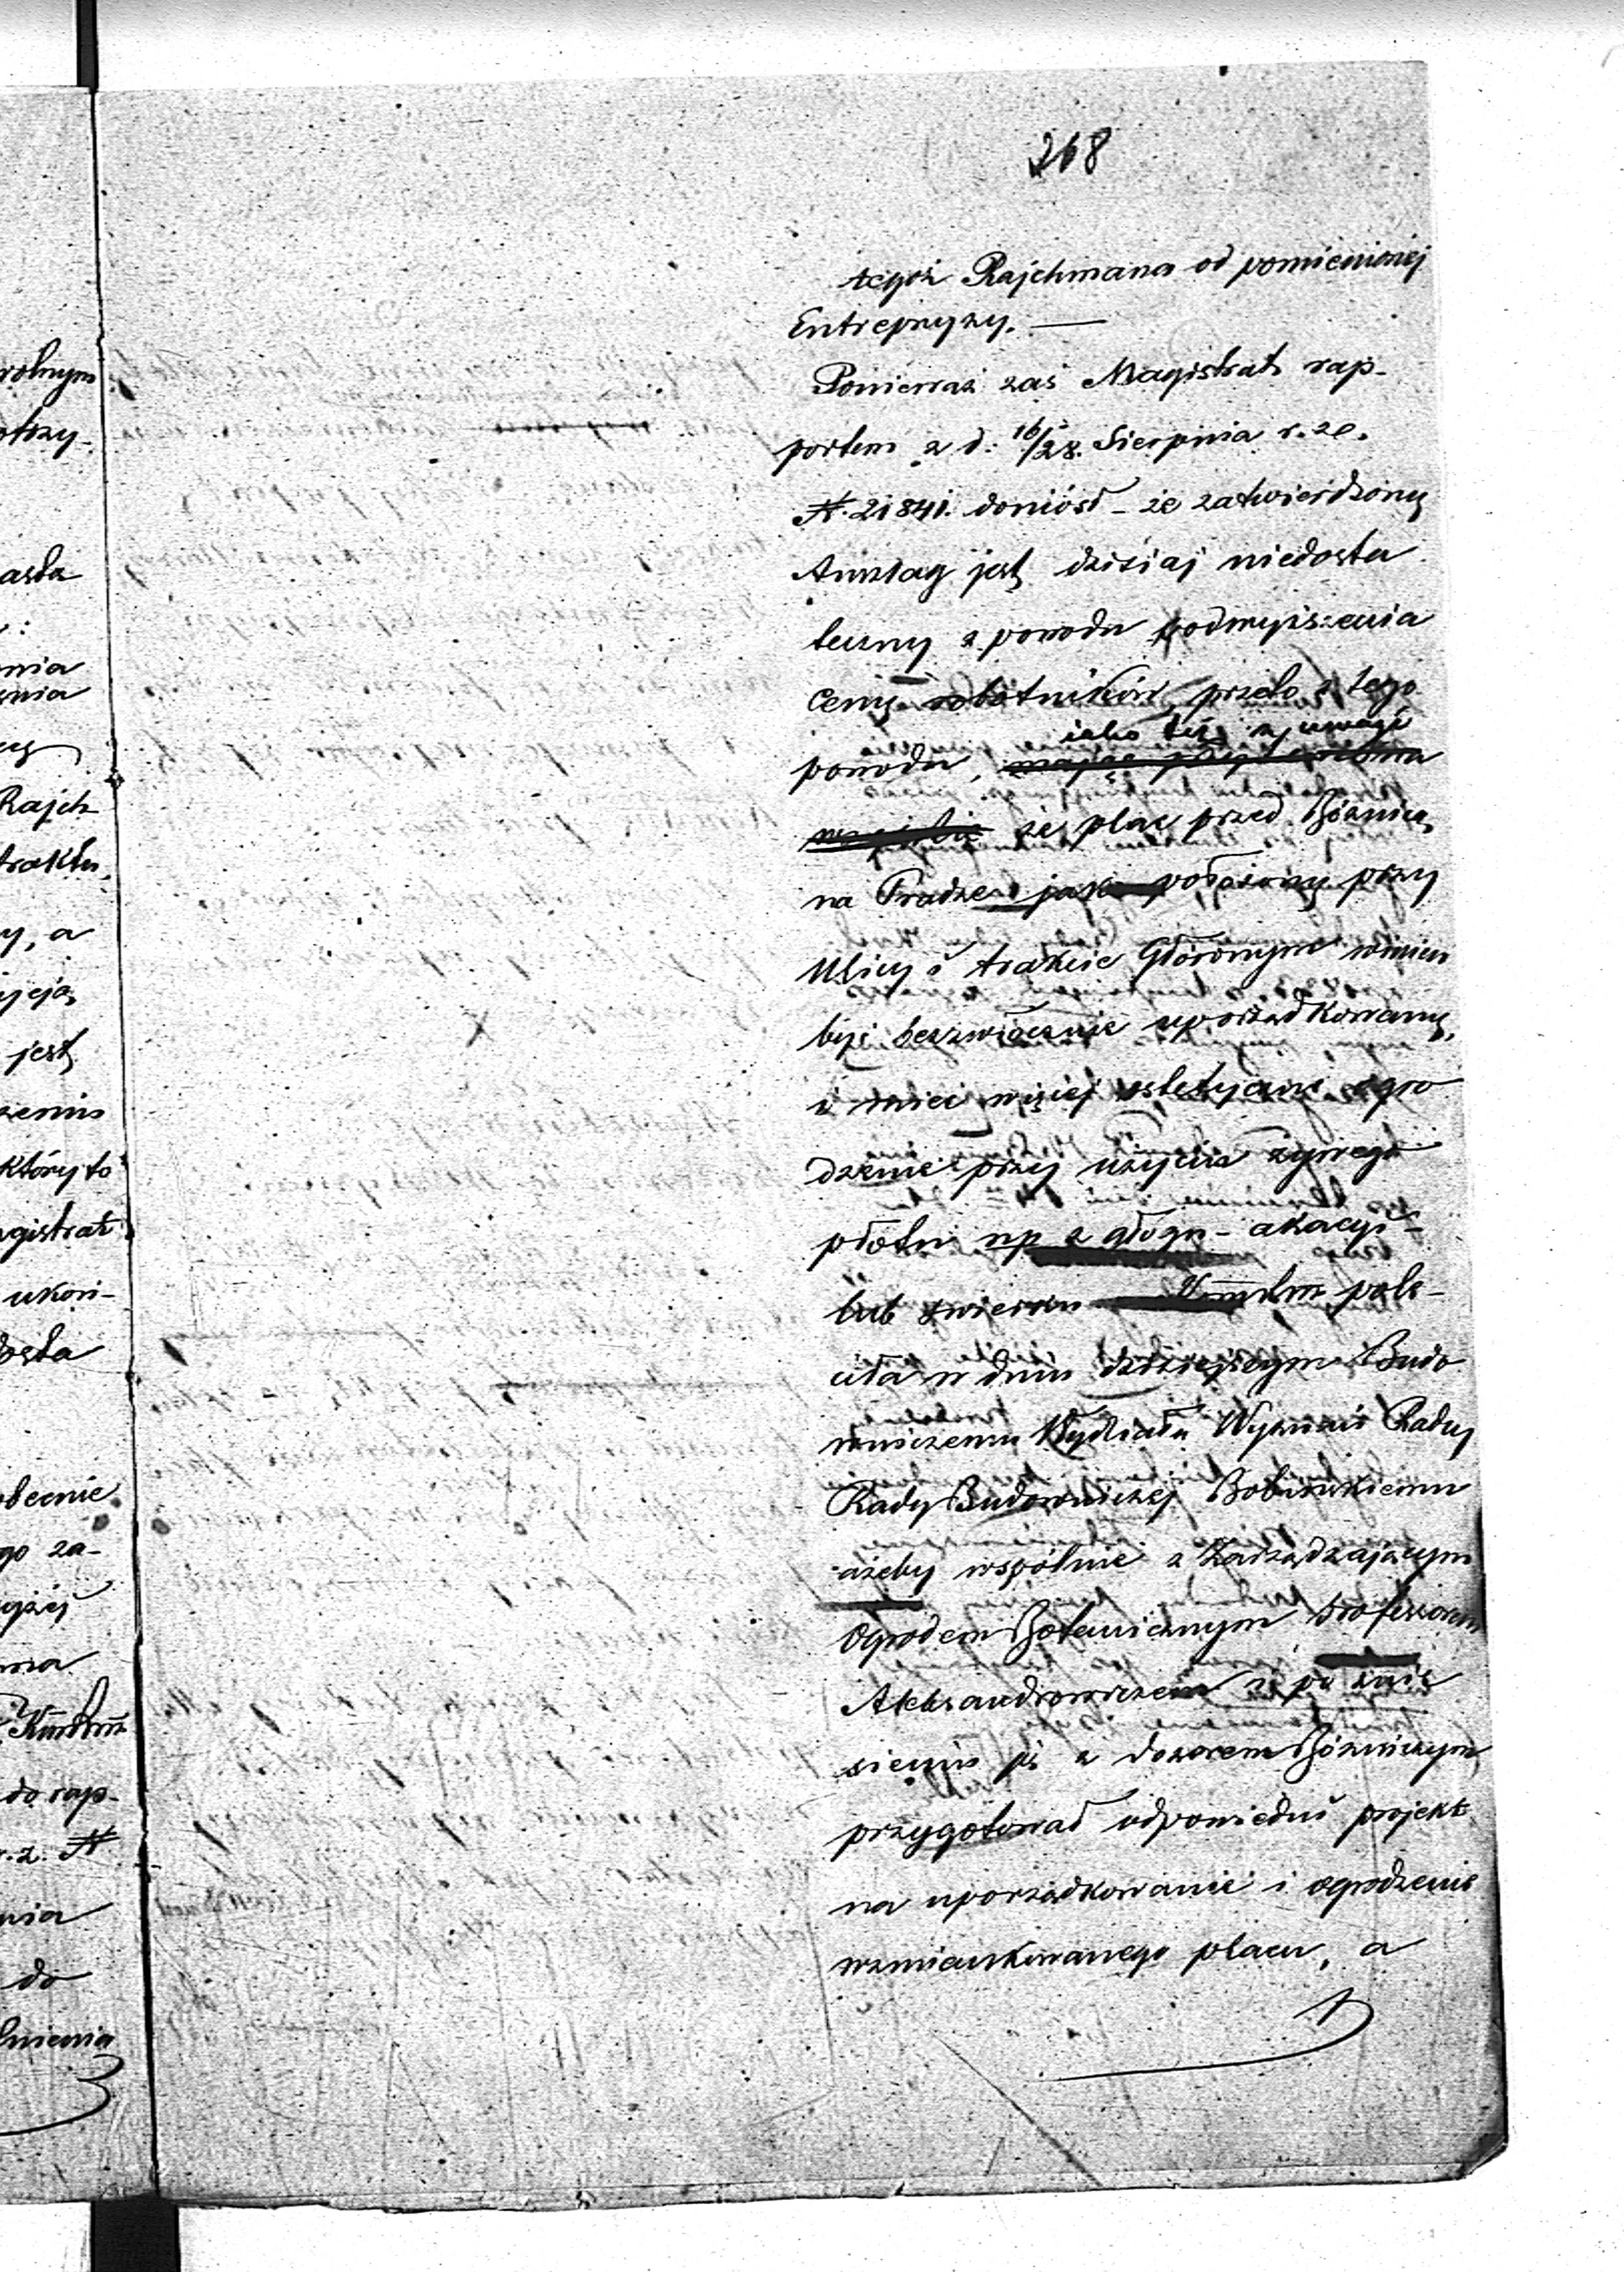 268
tegoż Rajchmana od pomienionej
Entrepryzy. —
Ponieważ zaś Magistrat rap-
portem z d: 16/28. Sierpnia r. z.
N. 21841. doniósł – że zatwierdzony
Anszlag jest dzisiaj niedosta
teczny z powodu podwyższenia
ceny robotników, przeto z tego
jako też z uwagi
powodu,
że plac przed Bóżnicą
na Pradze jako położony przy
Ulicy i trakcie Głównym winien
być bezzwłocznie uporządkowany,
i mieć więcej estetyczne ogro
dzenie przy użyciu żywego
płotu np z głogu – akacyi –
lub świerku pole-
ciła w dniu dzisiejszym Budo
wniczemu Wydziału Wyznań Rady
Rady Budowniczej Bobińskiemu
ażeby wspólnie z Zarządzającym
Ogrodem Botanicznym Professorem
Aleksandrowiczem i po znie
sieniu się z dozorem Bóżniczym
przygotował odpowiedni projekt
na uporządkowanie i ogrodzenie
wzmiankowanego placu, a
rolnym
otrzy-
asta
nia
enia
Rajch
traktu
y, a
jest
który to
agistrat
ukoń-
dosta
obecnie
go za-
yżej
do rap-
r. z. N
nia
do
lnienia